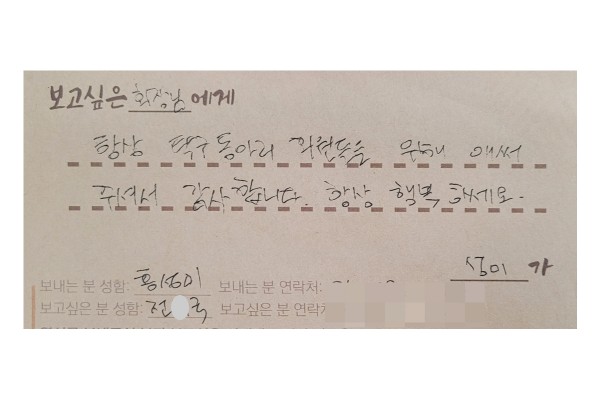 보고싶은 회장님 에게
항상 탁구 동아리 회원들을 위해 애써
주셔서 감사합니다. 항상 행복 하세요.
성미 가
보내는 분 성함: 홍성미 보내는 분 연락처:
보고싶은 분 성함: 전 국 보고싶은 분 연락처